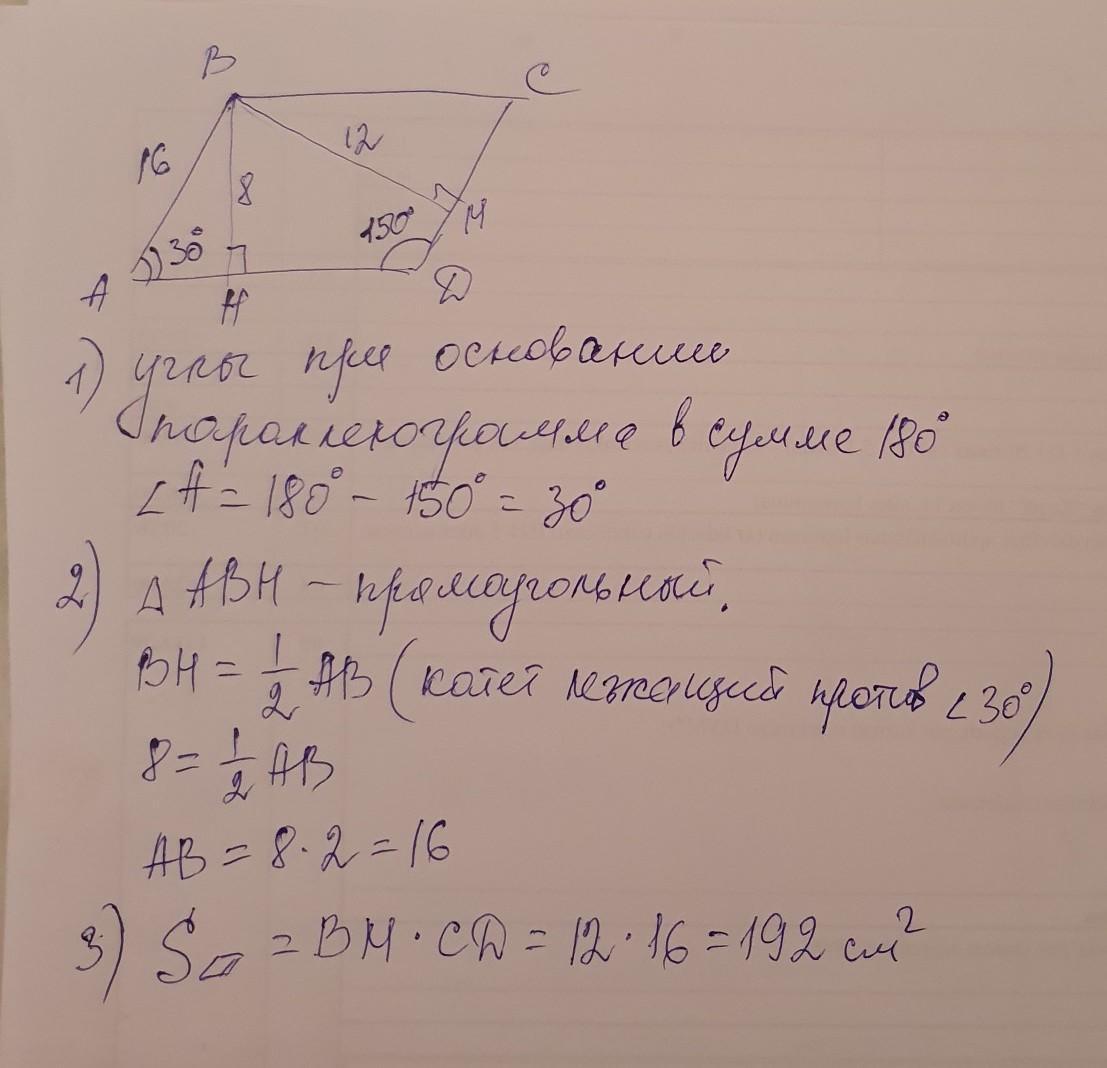 B
C
16
12
8
30°
150°
M
A
H
D
1) углы при основании
параллелограмма в сумме 180°
∠A = 180° - 150° = 30°
2) △ ABH - прямоугольный.
BH = 1/2 AB (катет лежащий против ∠30°)
8 = 1/2 AB
AB = 8 · 2 = 16
3) S▱ = BM · CD = 12 · 16 = 192 см²